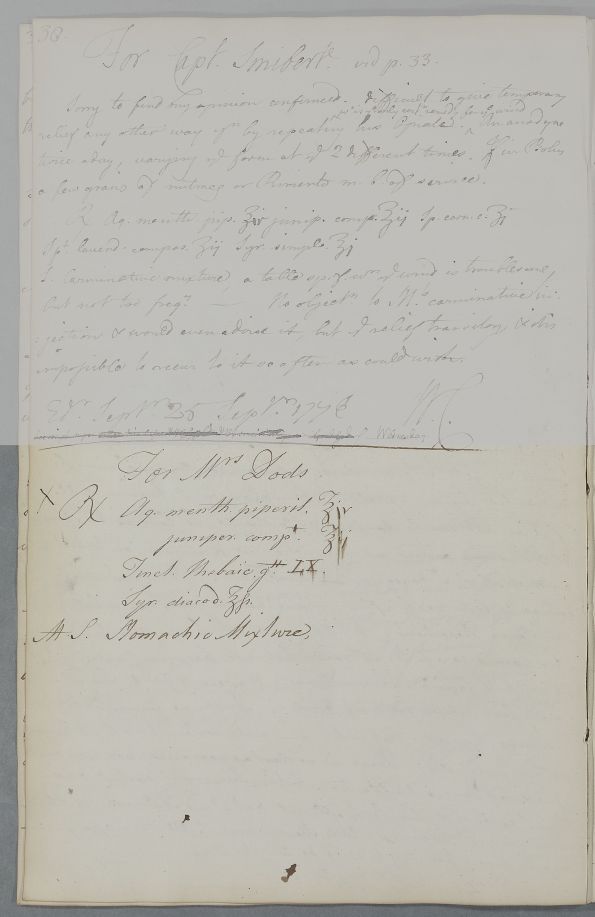 38.
For Capt. Smibert. vid p. 33.
Sorry to find my opinion confirmed. Difficult to give temporary
relief any other way yn by repeating his Opiate. An anodyne
twice a day, varying ye form at ye 2 different times. In ye Bolus
a few grains of nutmeg or Pimento m. b. of service.
℞ Aq. menth. pip. ℥iv junip. comp. ℥ij Sp. carui. c. ℥j
Spt. lavend. compos. ʒij Syr. simpl. ℥j
S. Carminative mixture, a table sp. f. wn ye wind is troublesome,
but not too freqt. — No objectn to Mr carminative in-
jection & would even advise it, but ye relief transitory, & tis
impossible to recur to it so often as could wish.
Edr. Septr 25 Septr 1778 WC
For Mrs Dods
X ℞ Aq. menth. piperit. ℥iv
juniper. compt. ℥ij
Tinct. Thebaic. gtt LX.
Syr. diacod. ℥ß.
M S. Stomachic Mixture.